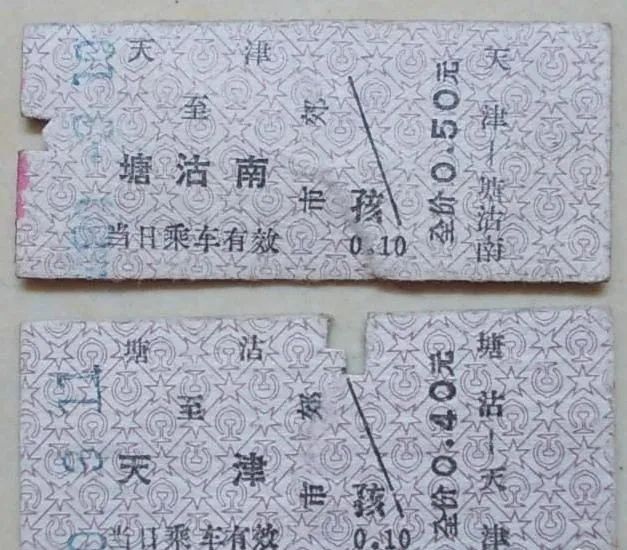 天 津
至
塘沽南
当日乘车有效
市郊
孩
0.10
全价0.50元
天津—塘沽南
塘 沽
至
天 津
当日乘车有效
市郊
孩
0.10
全价0.40元
塘沽—天津